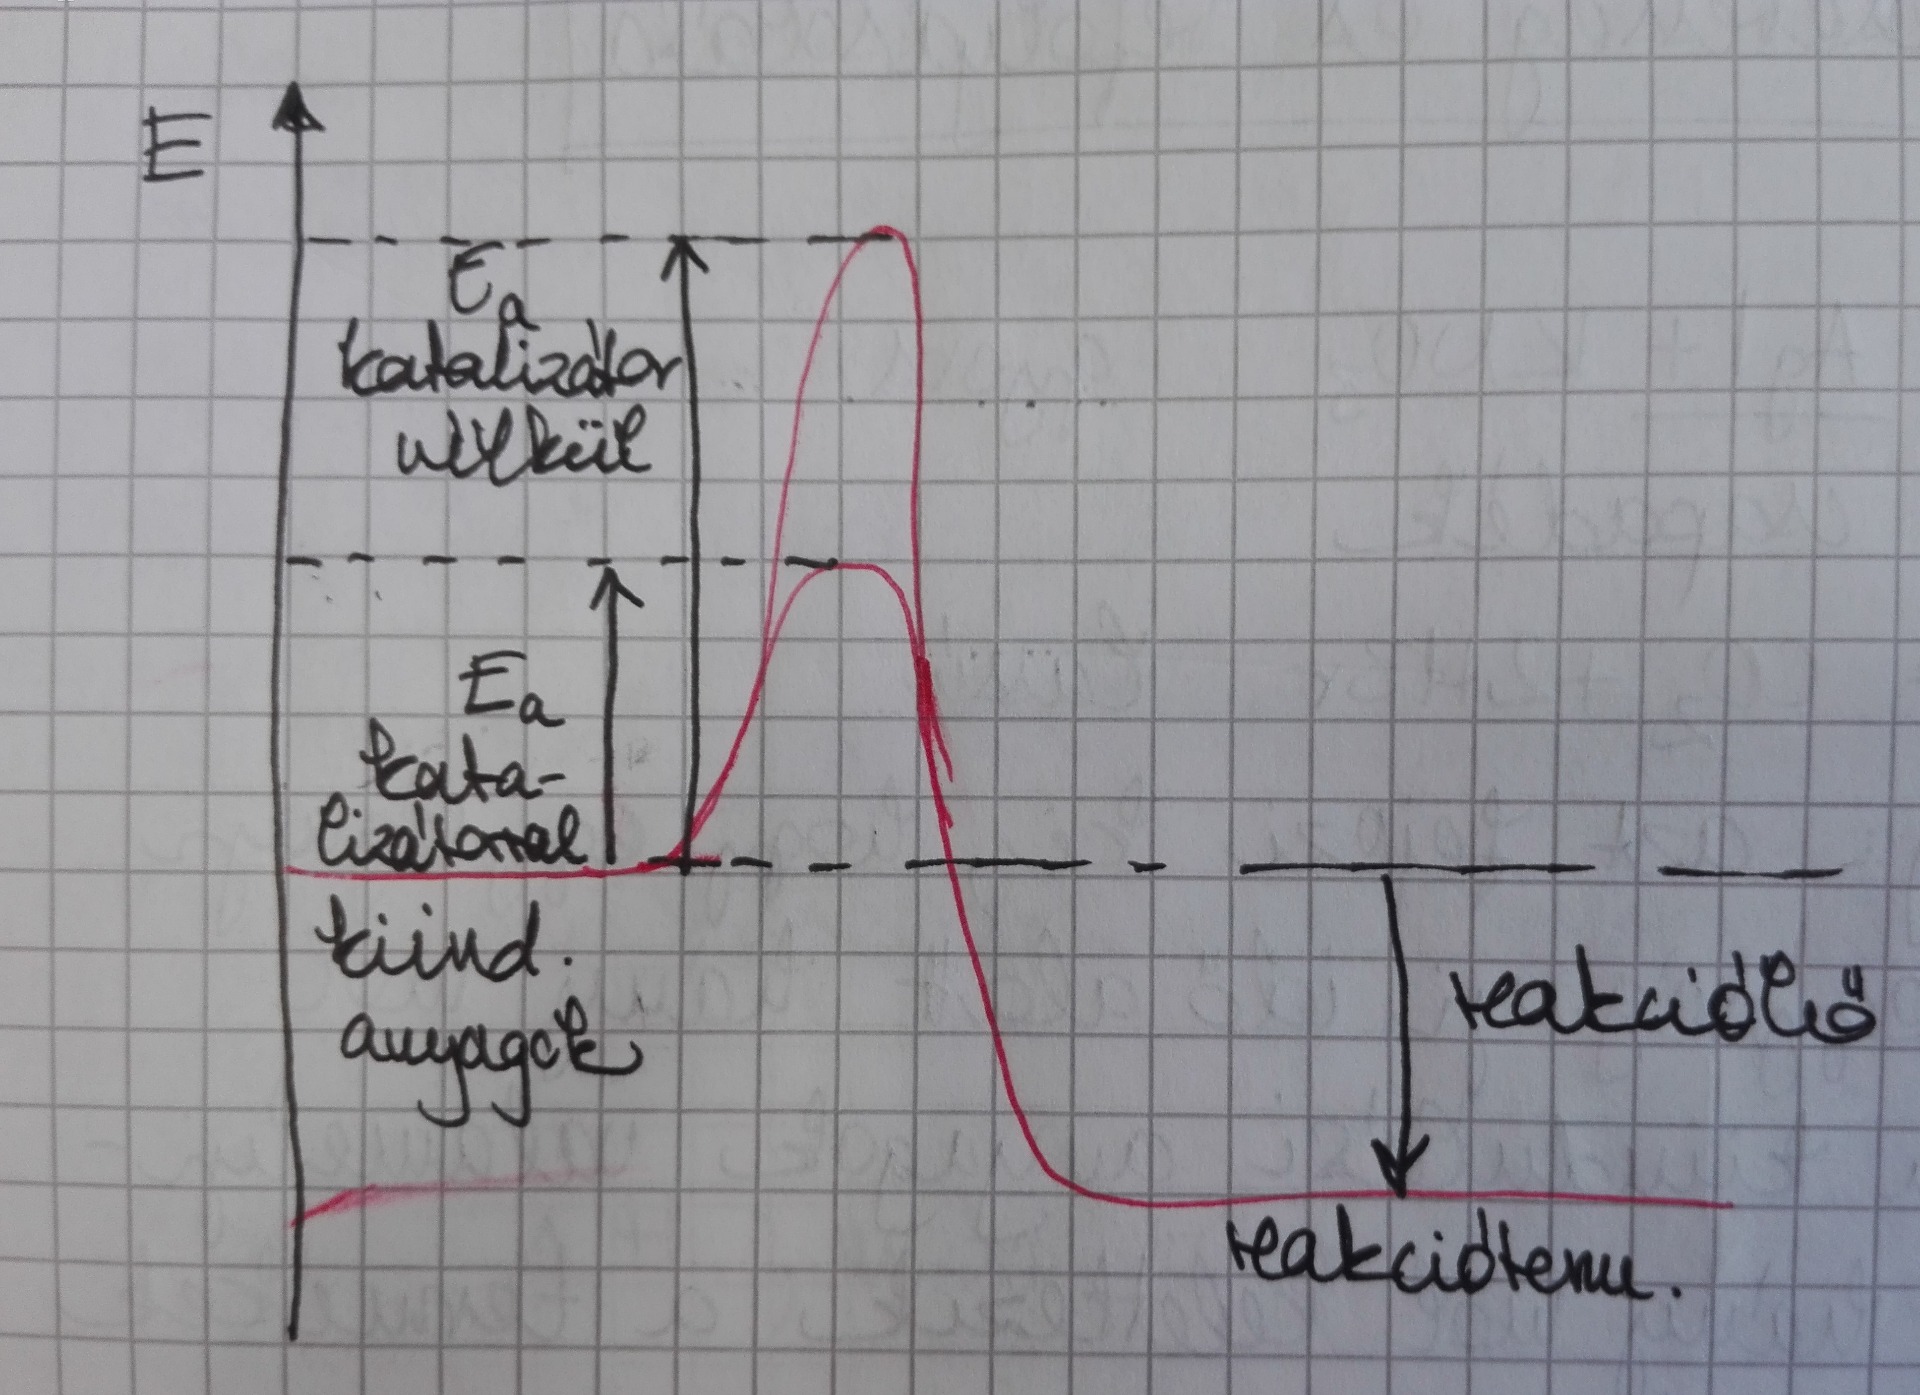 E
Ea
katalizátor
nélkül
Ea
kata-
lizátorral
kiind.
anyagok
reakcióhő
reakcióterm.